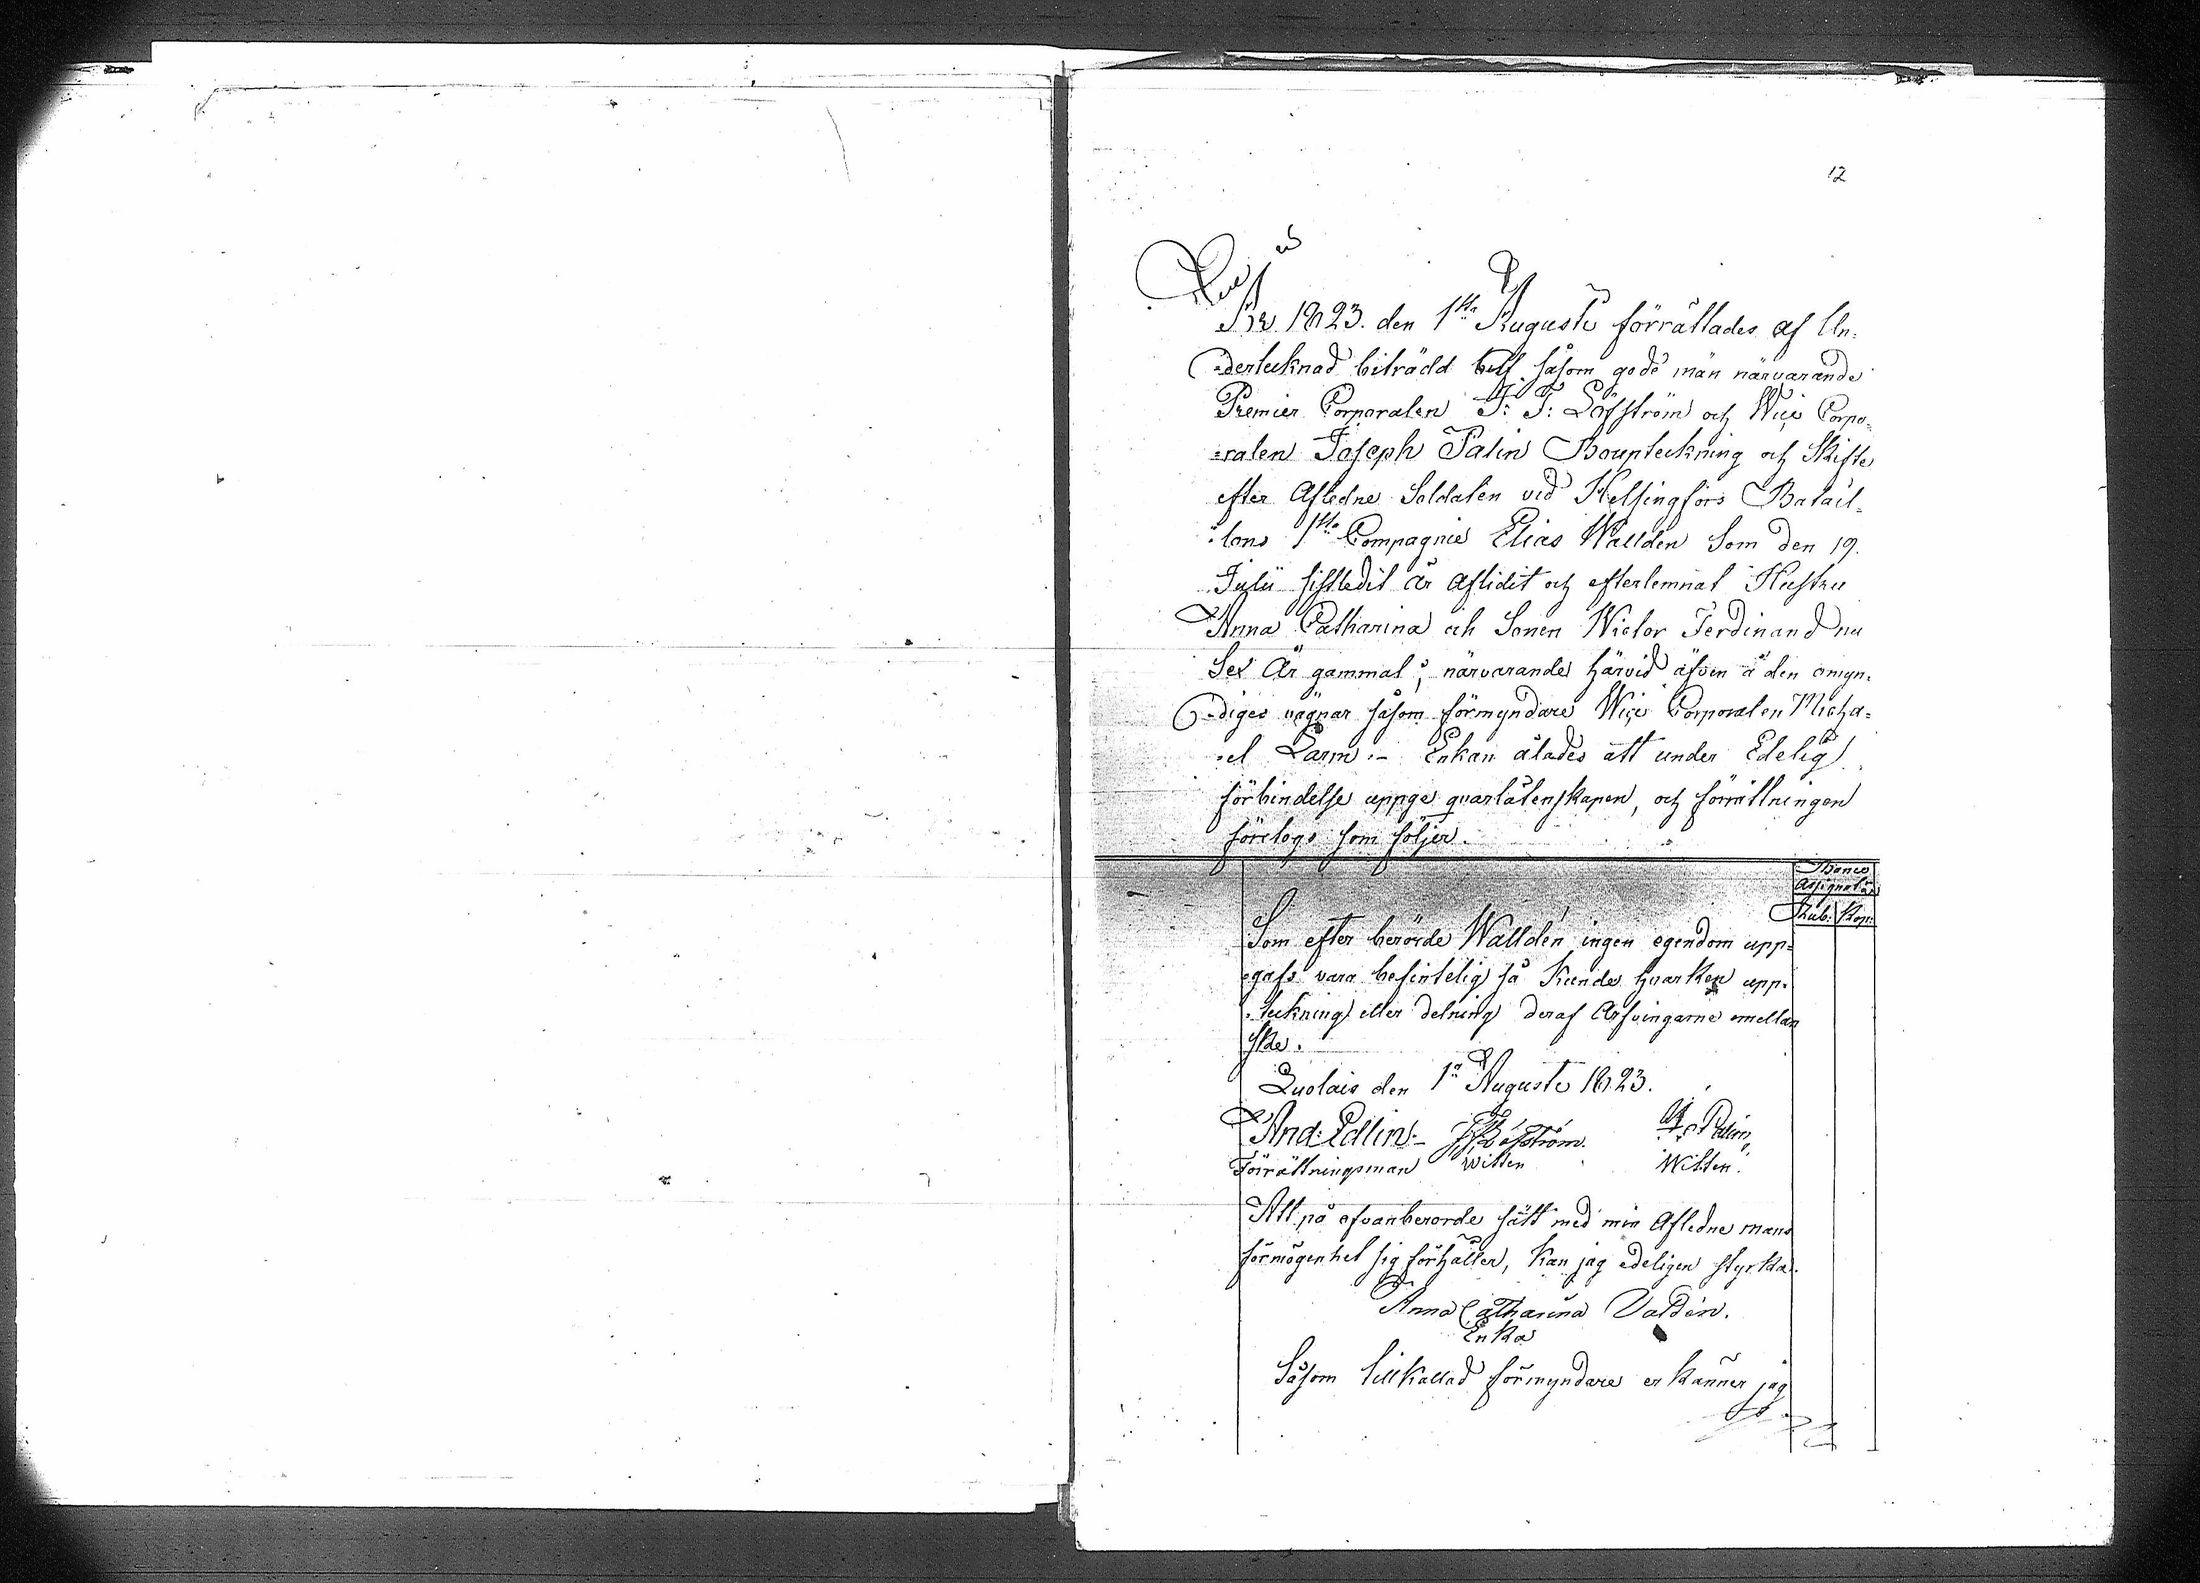 12
År 1823. den 1sta Augusti förrättades af Un-
dertecknad biträdd utaf såsom gode män närvarande
Premier Corporalen F: F: Löfström och Wice Corpo-
ralen Joseph Palin Bouptekning och Skifte
efter Afledne Soldaten vid Helsingfors Batail-
lons 1sta Compagnie Elias Wallden Som den 19.
Julii sistledit År aflidit och efterlemnat Hustru
Anna Catharina och Sonen Wictor Ferdinand nu
Sex År gammal; närvarande härvid äfven å den omyn-
diges vägnar såsom förmyndare Wice Corporalen Micha-
el Larm.- Enkan ålades att under Edelig
förbindelse uppge qvarlåtenskapen, och förrättningen
företogs som följer.
Banco
Assignatio
Rub: Kop:
Som efter berörde Walldén ingen egendom upp-
gafs vara befintelig så kunde hvarken upp-
tekning eller delning deraf Arfvingarne emellan
ske.
Luolais den 1a Augusti 1823.
And: Edlin.- F F Löfström. Palin
Förrättningsman Witten Witten.
Att på ofvanberorde sätt med min Afledne mans
förmögenhet sig förhåller, kan jag edeligen styrka.
Anna Catharina Valdén.
Enka
Såsom tillkallad förmyndare erkänner jag